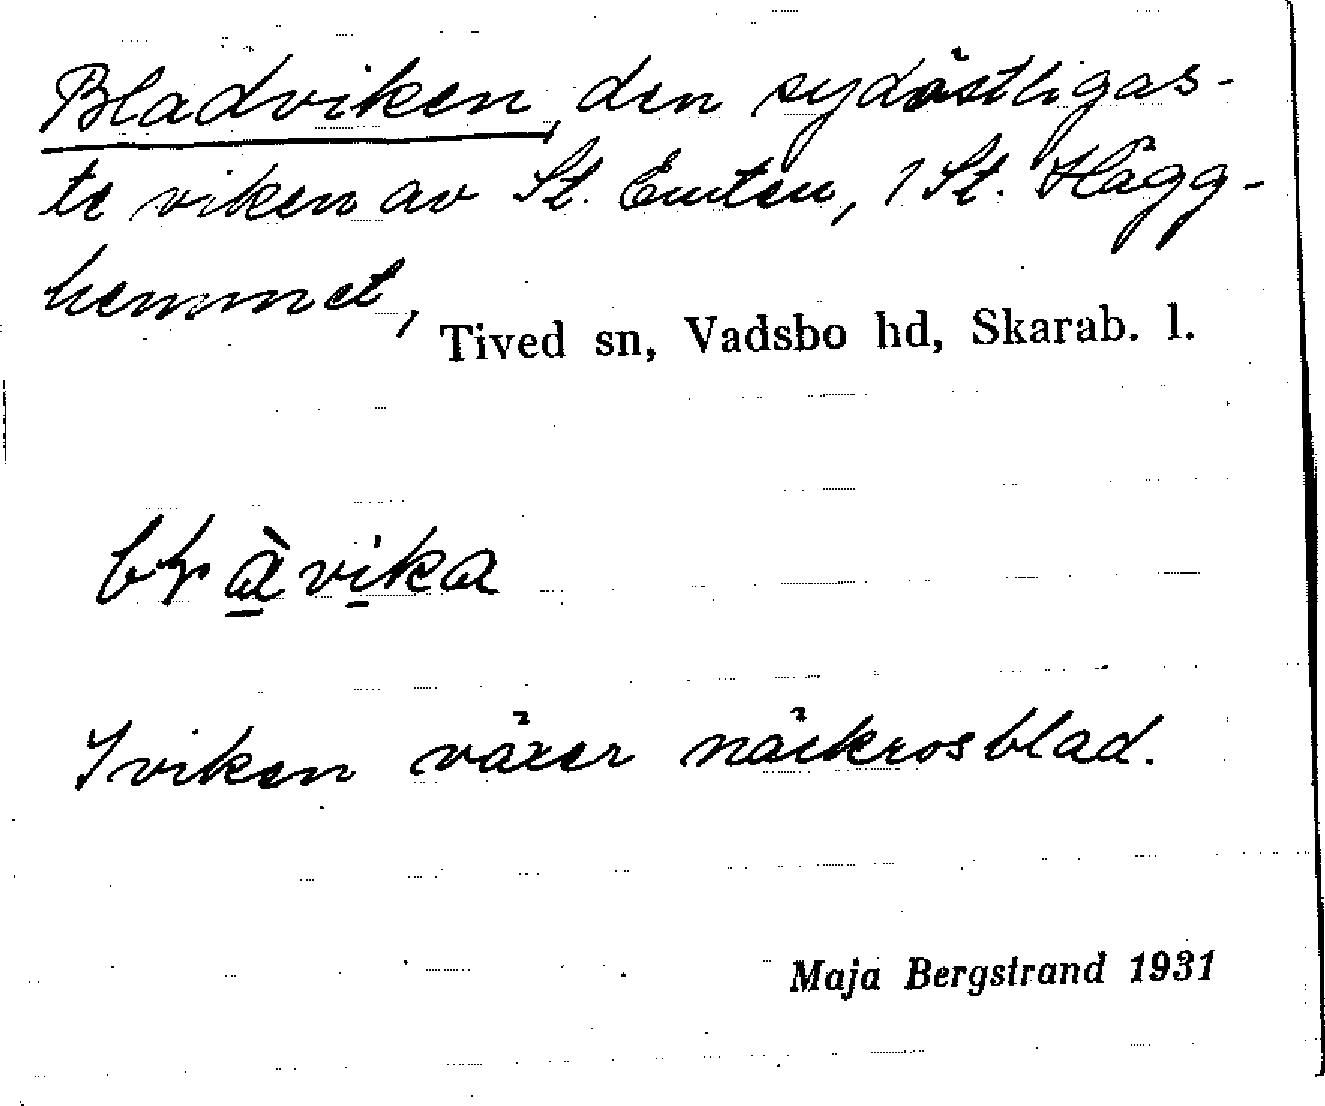 Bladviken, den sydöstligas-
te viken av St. Emten, i St. Hägg-
hemmet,
Tived sn, Vadsbo hd, Skarab. l.
bɽàvika
I viken växer näckrosblad.
Maja Bergstrand 1931